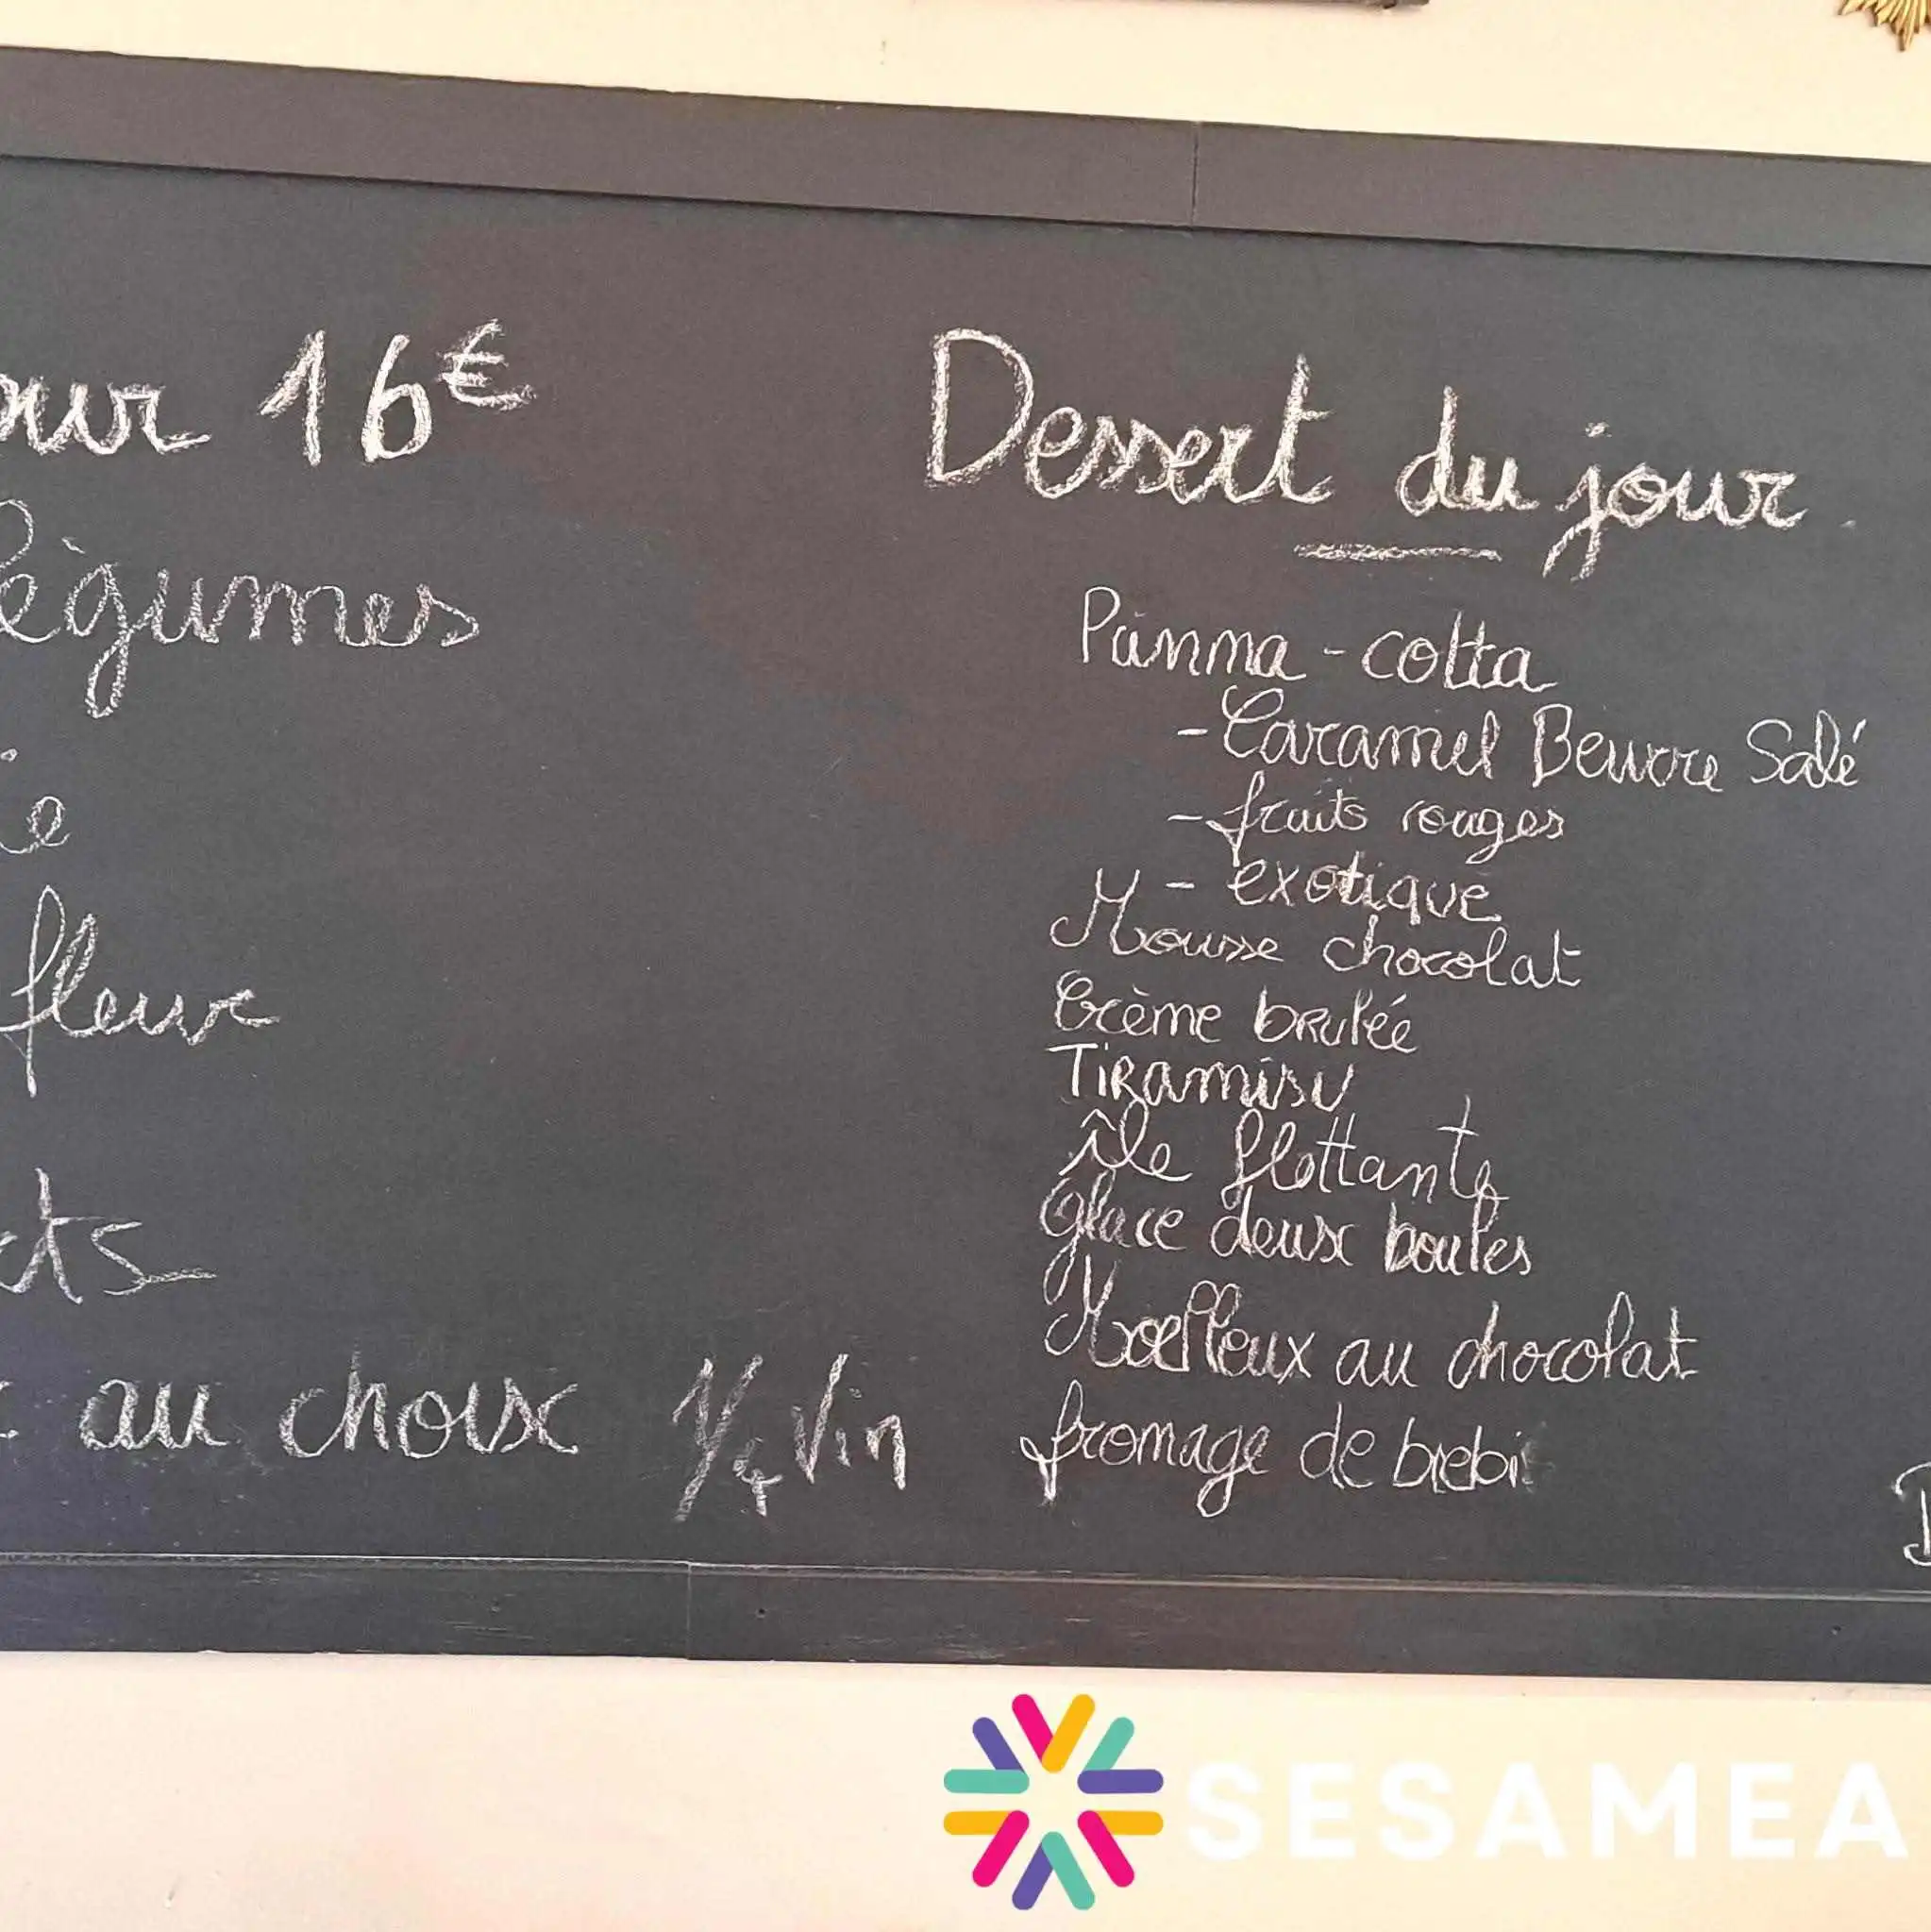 our 16€
légumes
fleur
au choix 1/4 Vin
Dessert du jour
Panna-cotta
- Caramel Beurre Salé
- fruits rouges
- exotique
Mousse chocolat
Crème brulée
Tiramisu
île flottante
Glace deux boules
Moelleux au chocolat
fromage de brebi
SESAMEA